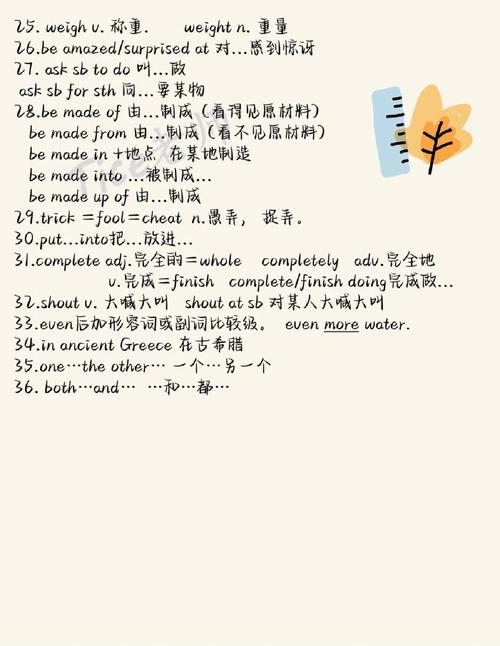 25. weigh v. 称重. weight n. 重量
26.be amazed/surprised at 对...感到惊讶
27. ask sb to do 叫...做
ask sb for sth 向...要某物
28.be made of 由...制成（看得见原材料）
be made from 由...制成（看不见原材料）
be made in +地点 在某地制造
be made into ...被制成...
be made up of 由...制成
29.trick =fool=cheat n.愚弄，捉弄。
30.put...into把...放进...
31.complete adj.完全的=whole completely adv.完全地
v.完成=finish complete/finish doing完成做...
32.shout v. 大喊大叫 shout at sb 对某人大喊大叫
33.even后加形容词或副词比较级。 even more water.
34.in ancient Greece 在古希腊
35.one…the other… 一个…另一个
36. both…and… …和…都…